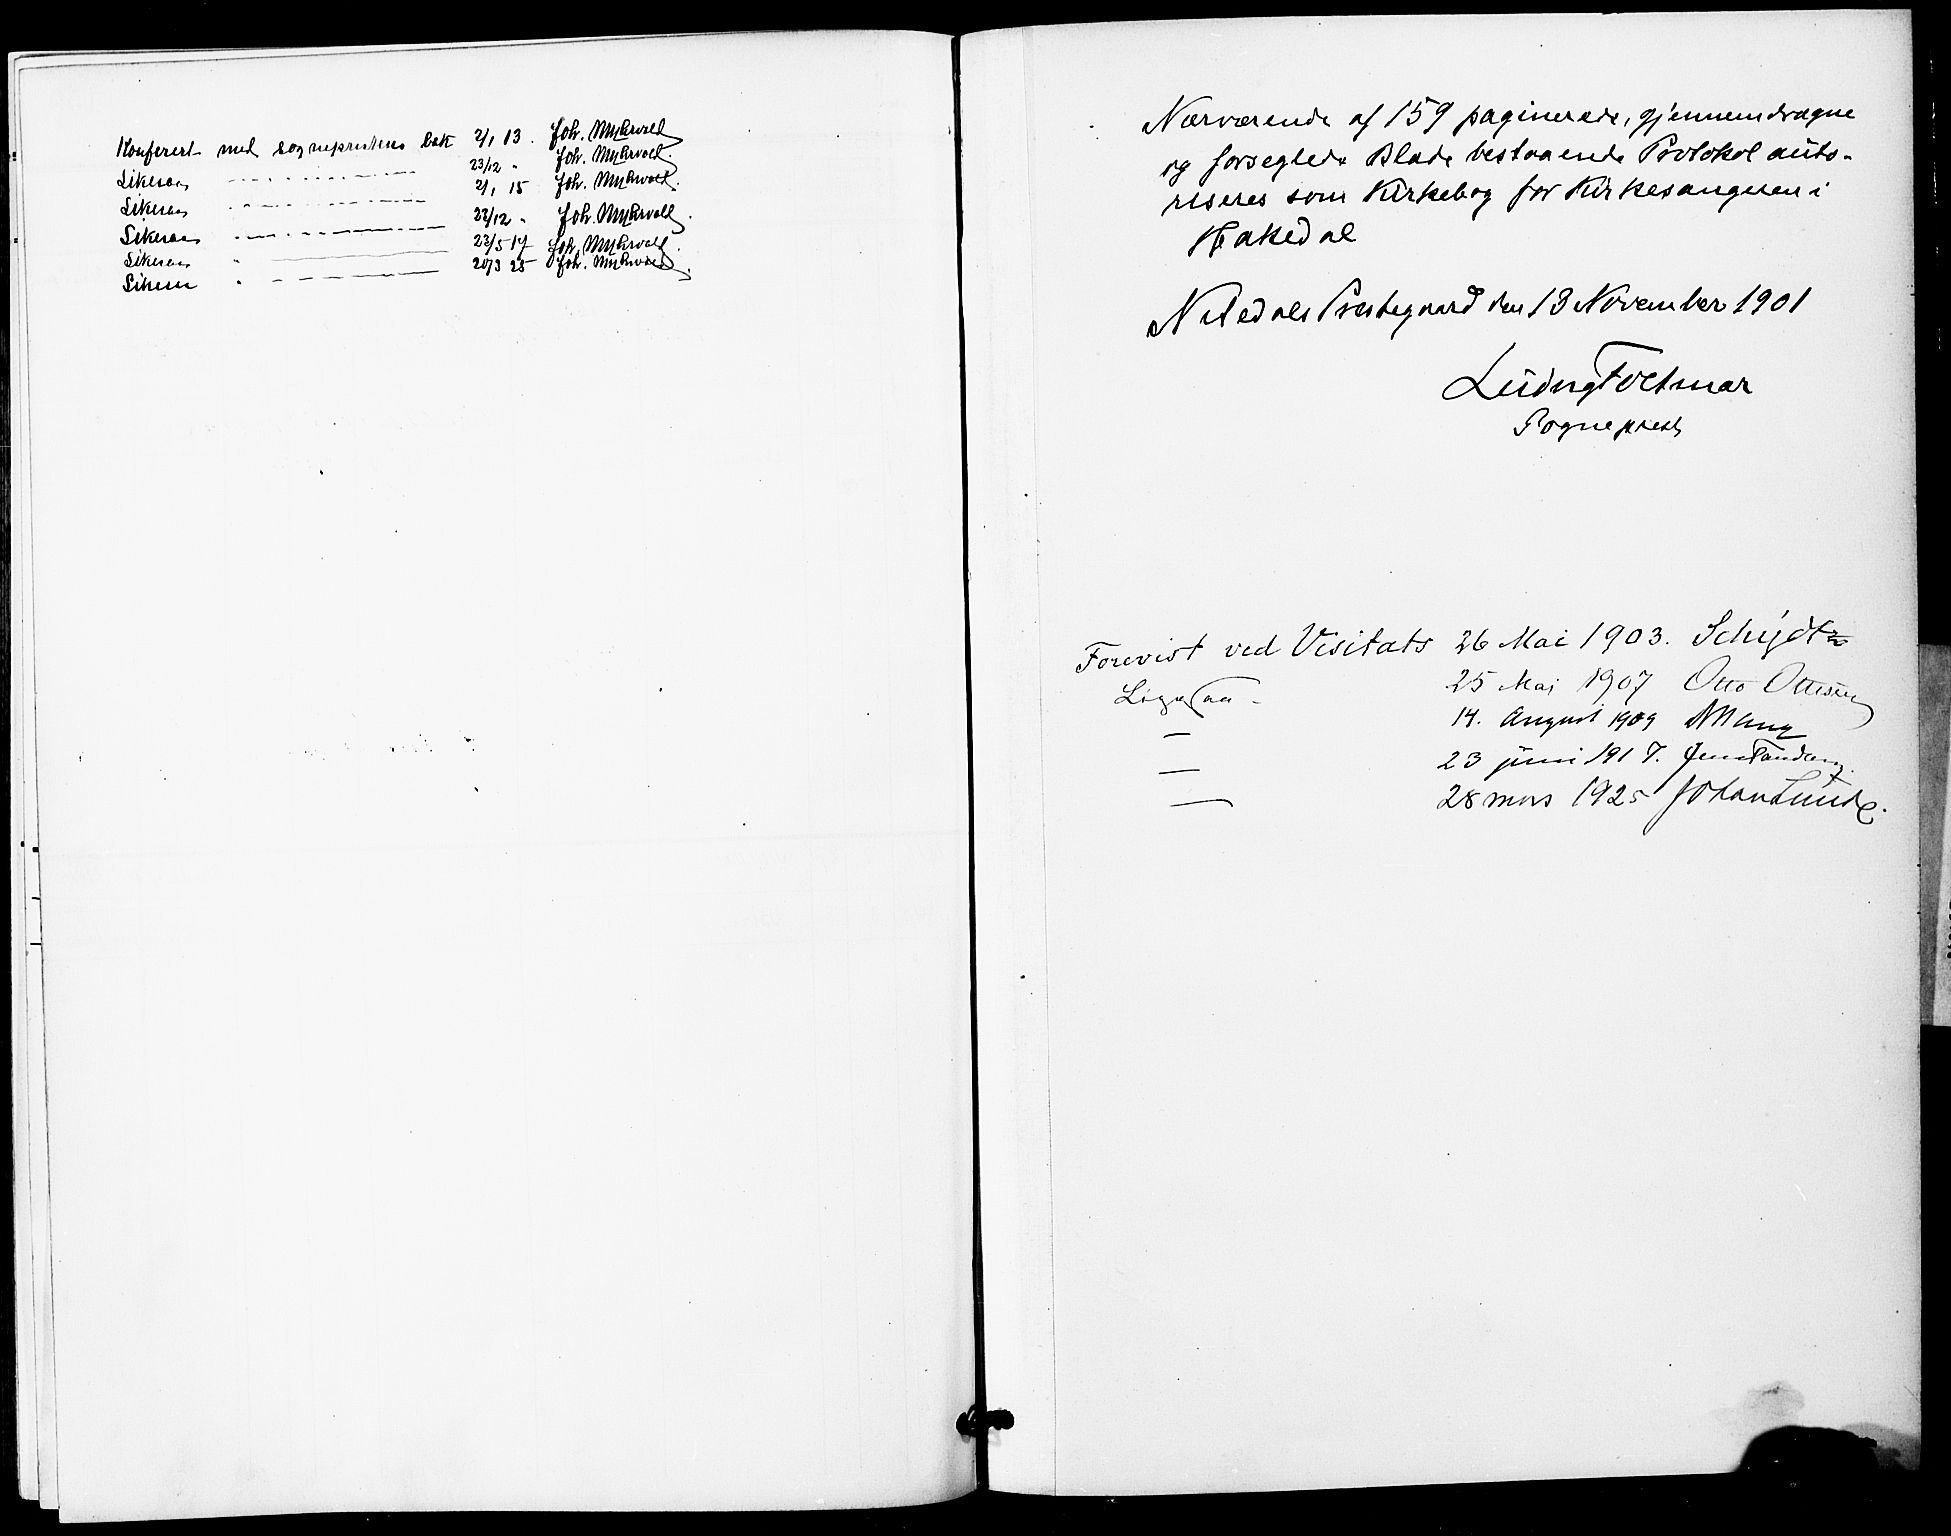 Konferert med sogneprestens bok 2/1 13. Joh. Myhrvold
Likesaa — " — 23/12 " Joh. Myhrvold.
Likesaa — " — 2/1 15 Joh. Myhrvold.
Likesaa — " — 22/12 " Joh. Myhrvold.
Likesaa " — 23/5 17 Joh. Myhrvold.
Likesaa " — 20/3 25 Joh. Myhrvold.
Nærværende af 159 paginerede, gjennemdragne
og forseglede Blade bestaaende Protokol auto-
riseres som Kirkebog for Kirkesangeren i
Hakedal
Nitedals Prestegaard den 13 November 1901
Ludvig Voltmar
Sogneprest
Forevist ved Visitats 26 Mai 1903. Schjøtz
Ligesaa - 25 Mai 1907 Otto Ottesen
— 14. August 1909
— 23 juni 1917. Jens Tandberg.
— 28 mars 1925 Johan Lunde.